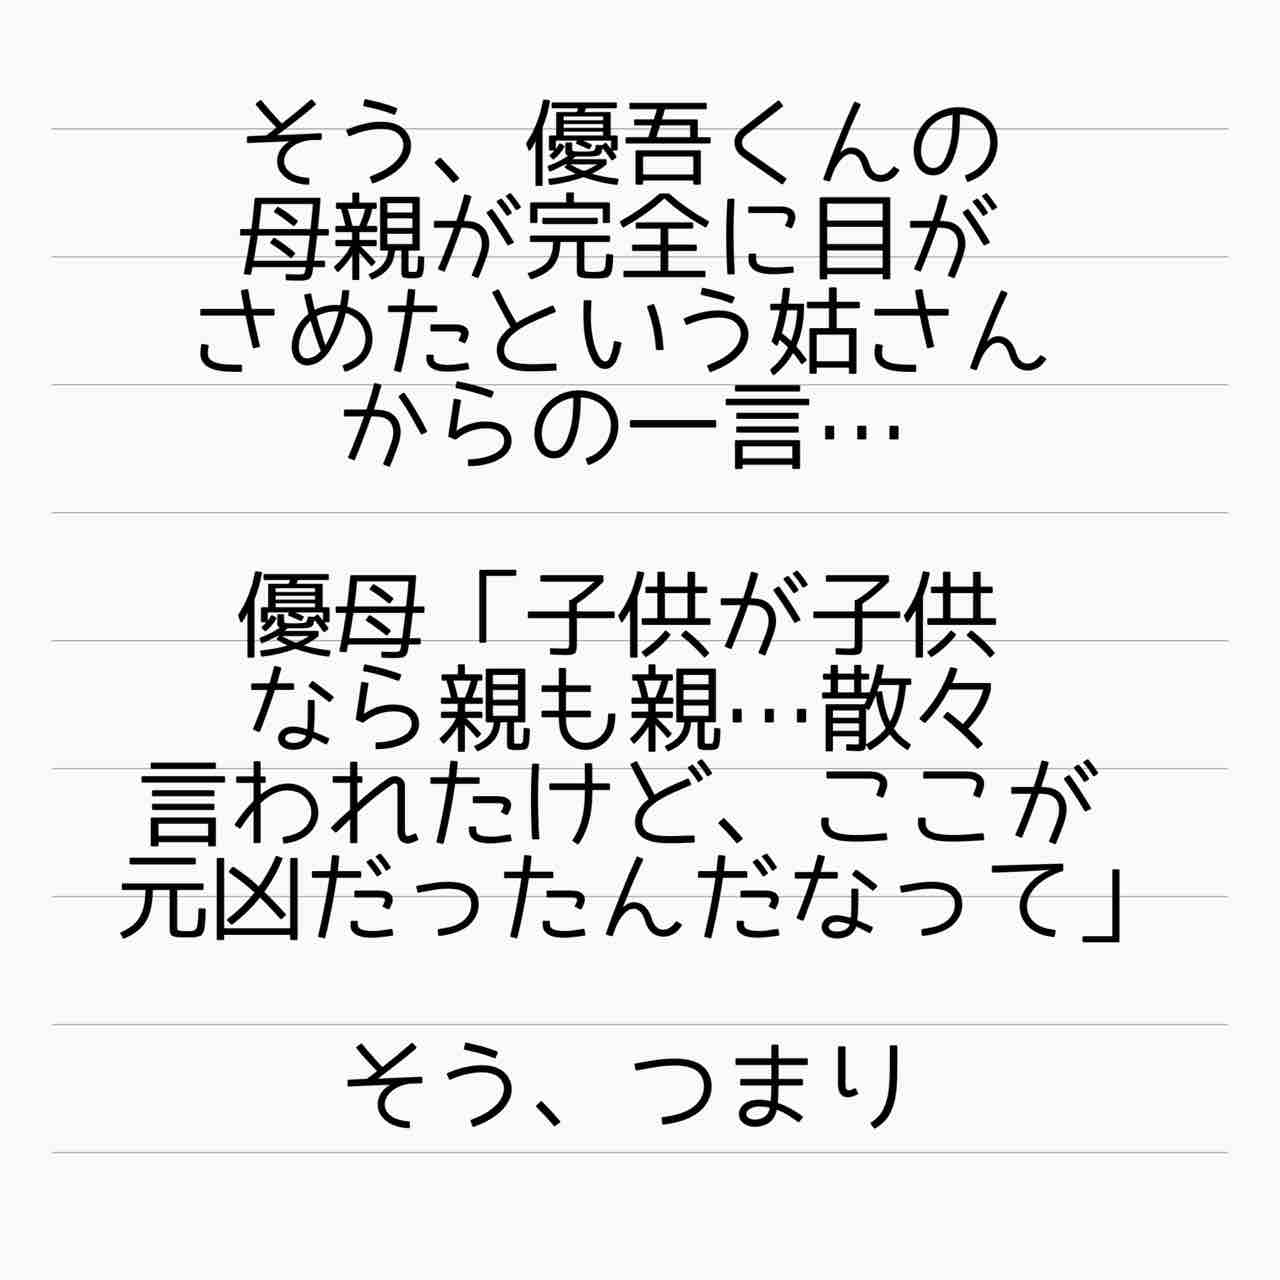 そう、優吾くんの
母親が完全に目が
さめたという姑さん
からの一言…
優母「子供が子供
なら親も親…散々
言われたけど、ここが
元凶だったんだなって」
そう、つまり